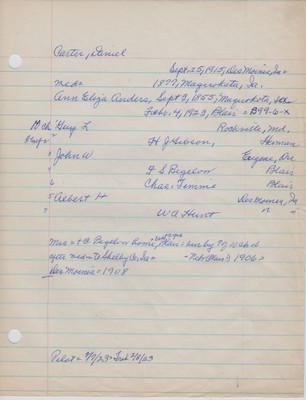 Carter, Daniel
Sept. 25, 1915, Des Moines, Ia =
med = 1877, Maquoketa, Ia.
Ann Eliza Anders, Sept 3, 1855, Maquoketa,
Febr. 4, 1923, Blair = B99-6-X
10 ch Guy L Rockville, Md.
H. J. Gibson, Herman
" John W Eugene, Ore
" F S Bigelow Blair
" Chas. Temme Blair
" Albert H Des Moines, Ia
" W A Hunt " "
Mrs = at Bigelow home, Blair =
after med = to Shelby Co, Ia = Nebr (Blair) 1906 =
Des Moines = 1908
Pilot = 2/7/23 = Trib 2/8/23